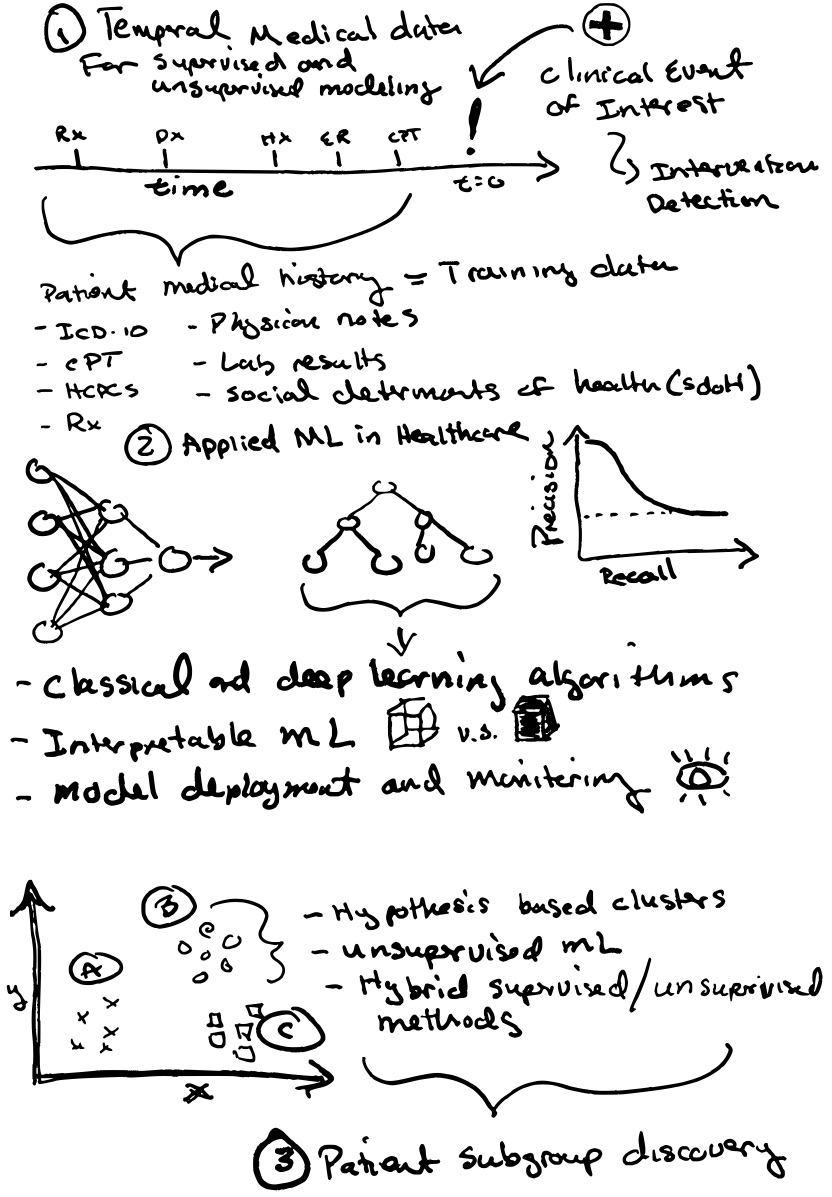 1 Temporal Medical data
For supervised and
unsupervised modeling
Clinical Event
of Interest
Intervention
Detection
Rx Dx Hx ER CPT !
time t=0
Patient medical history = Training data
- ICD-10 - Physician notes
- CPT - Lab results
- HCPCS - social determents of health (SdoH)
- Rx
2 Applied ML in Healthcare
Precision
Recall
- Classical and deep learning algorithms
- Interpretable ML v.s.
- Model deployment and monitering
A
B
C
y
x
- Hypothesis based clusters
- unsupervised ML
- Hybrid supervised/unsuperivised
methods
3 Patient subgroup discovery